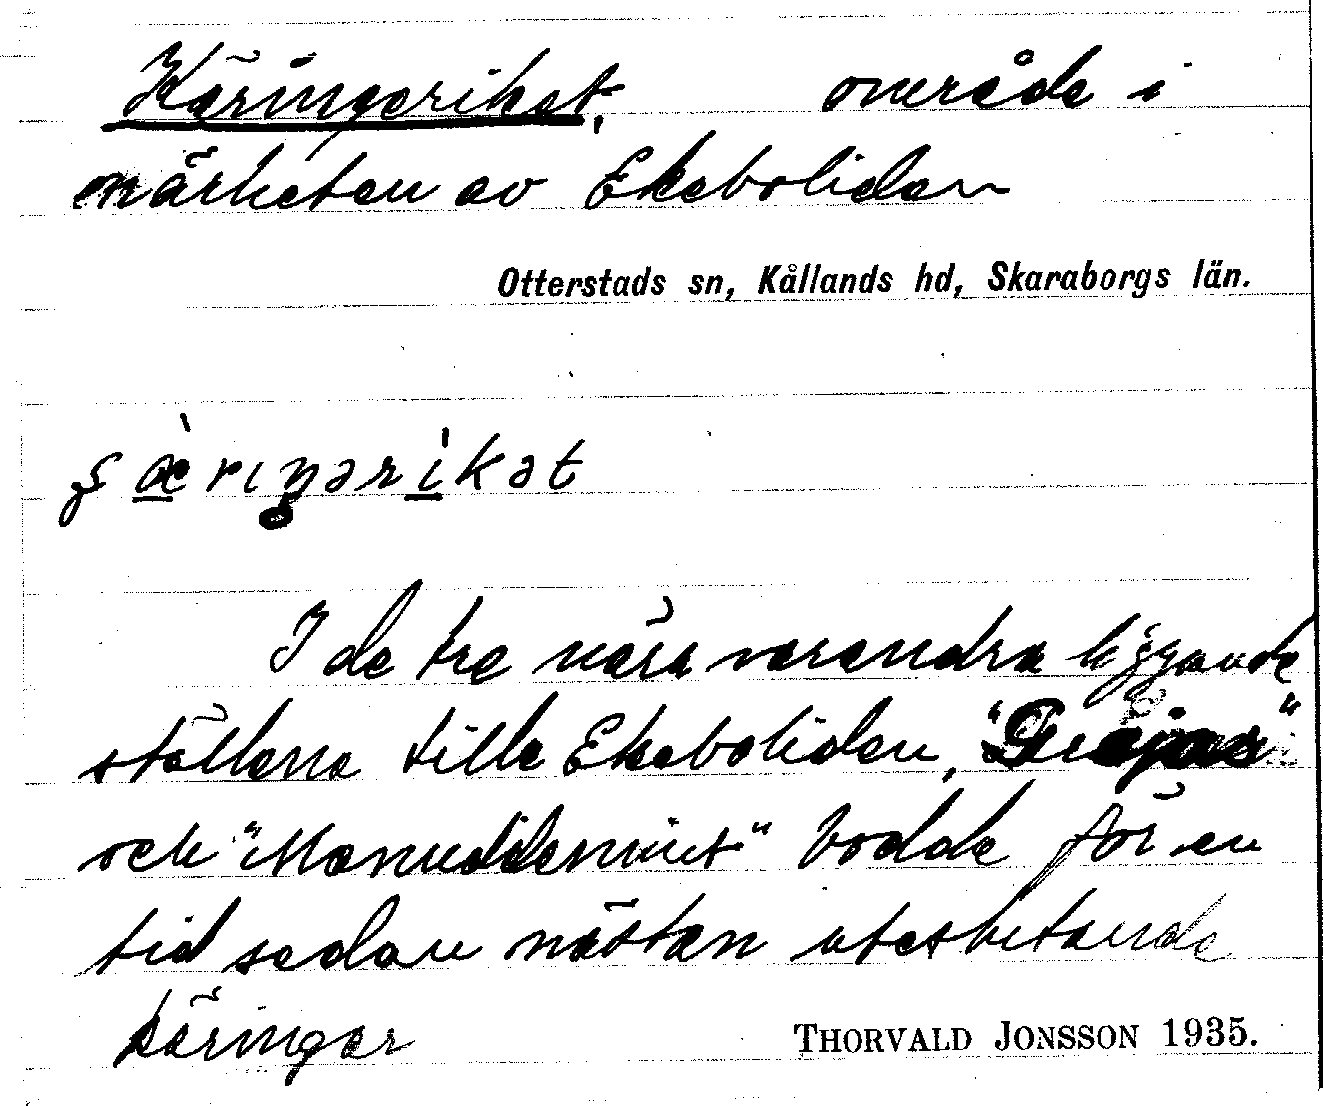 Käringeriket, område i
närheten av Ekeboliden
Otterstads sn, Kållands hd, Skaraborgs län.
I de tre nära varandra liggande
ställena lilla Ekeboliden,
och bodde för en
tid sedan nästan uteslutande
käringar
THORVALD JONSSON 1935.